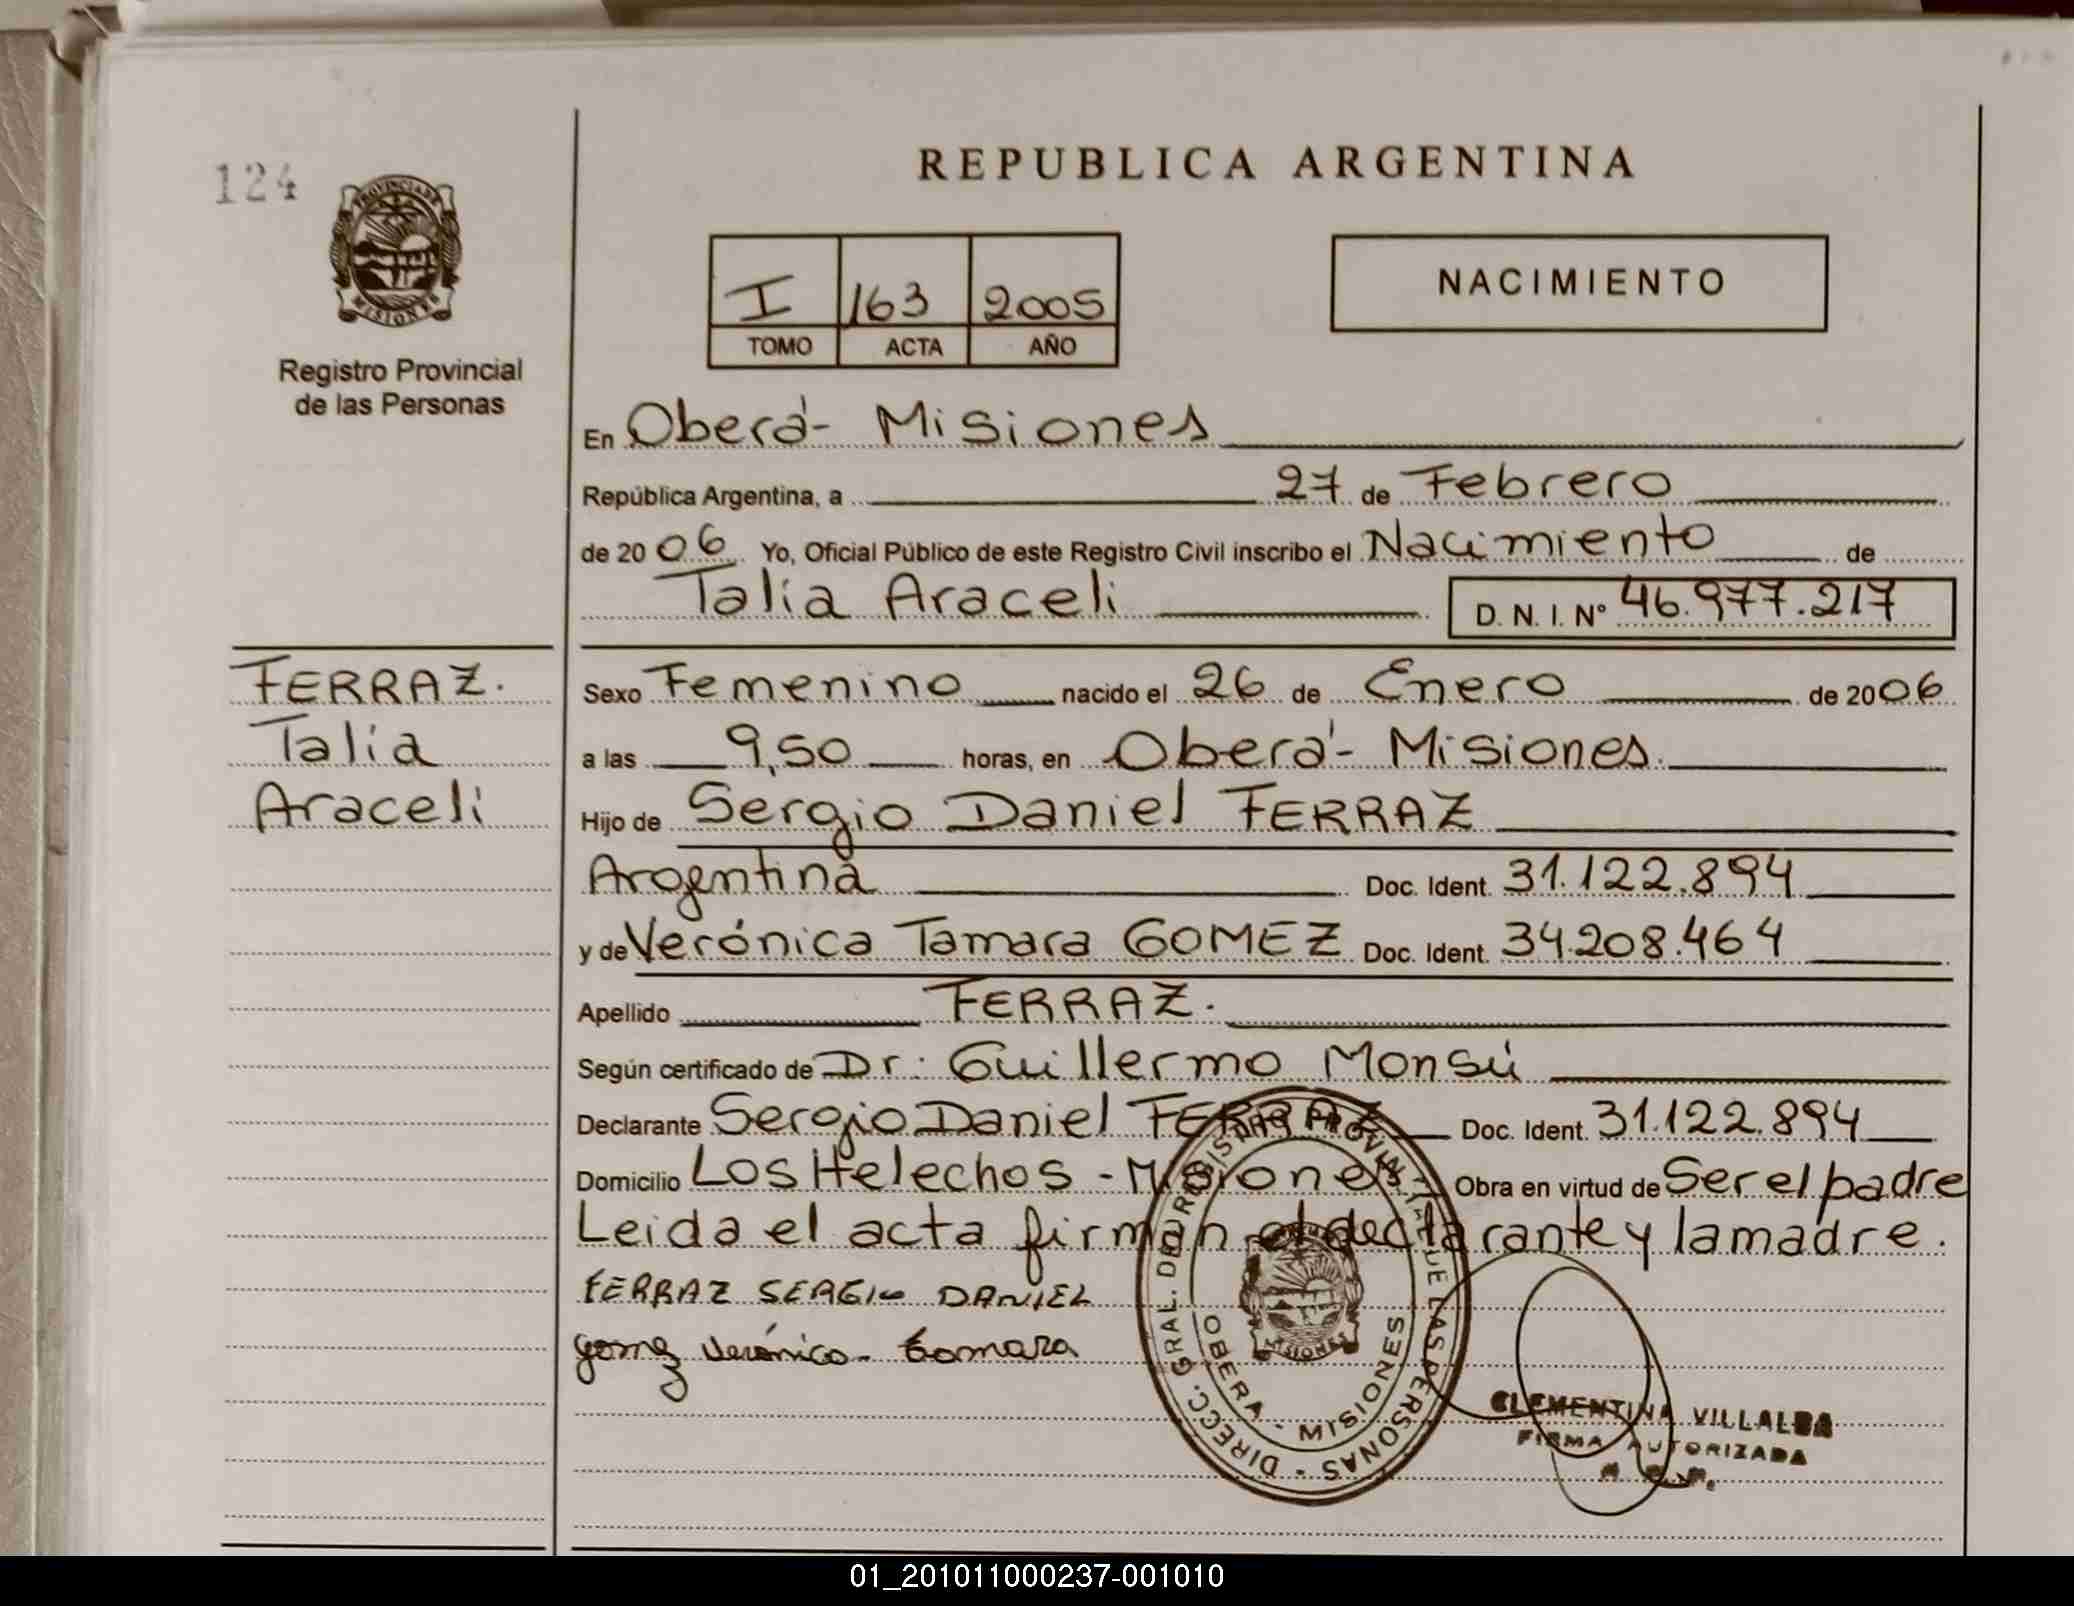 124
PROVINCIA DE
MISIONES
Registro Provincial
de las Personas
REPUBLICA ARGENTINA
I 163 2005
TOMO ACTA AÑO
NACIMIENTO
En Oberá - Misiones
República Argentina, a 27 de Febrero
de 20 06 Yo, Oficial Público de este Registro Civil inscribo el Nacimiento de
Talía Araceli D. N. I. Nº 46.977.217
FERRAZ.
Talía
Araceli
Sexo Femenino nacido el 26 de Enero de 20 06
a las 9,50 horas, en Oberá - Misiones.
Hijo de Sergio Daniel FERRAZ
Argentina Doc. Ident. 31.122.894
y de Verónica Tamara GOMEZ Doc. Ident. 34.208.464
Apellido FERRAZ.
Según certificado de Dr: Guillermo Monsú
Declarante Sergio Daniel FERRAZ Doc. Ident. 31.122.894
Domicilio Los Helechos - Misiones Obra en virtud de Ser el padre
Leida el acta firman el declarante y la madre.
FERRAZ SERGIO DANIEL
Gomez Verónica Tamara
DIRECC. GRAL. DE REGISTRO PROVINCIAL DE LAS PERSONAS
OBERA - MISIONES
MISIONES
CLEMENTINA VILLALBA
FIRMA AUTORIZADA
01_201011000237-001010